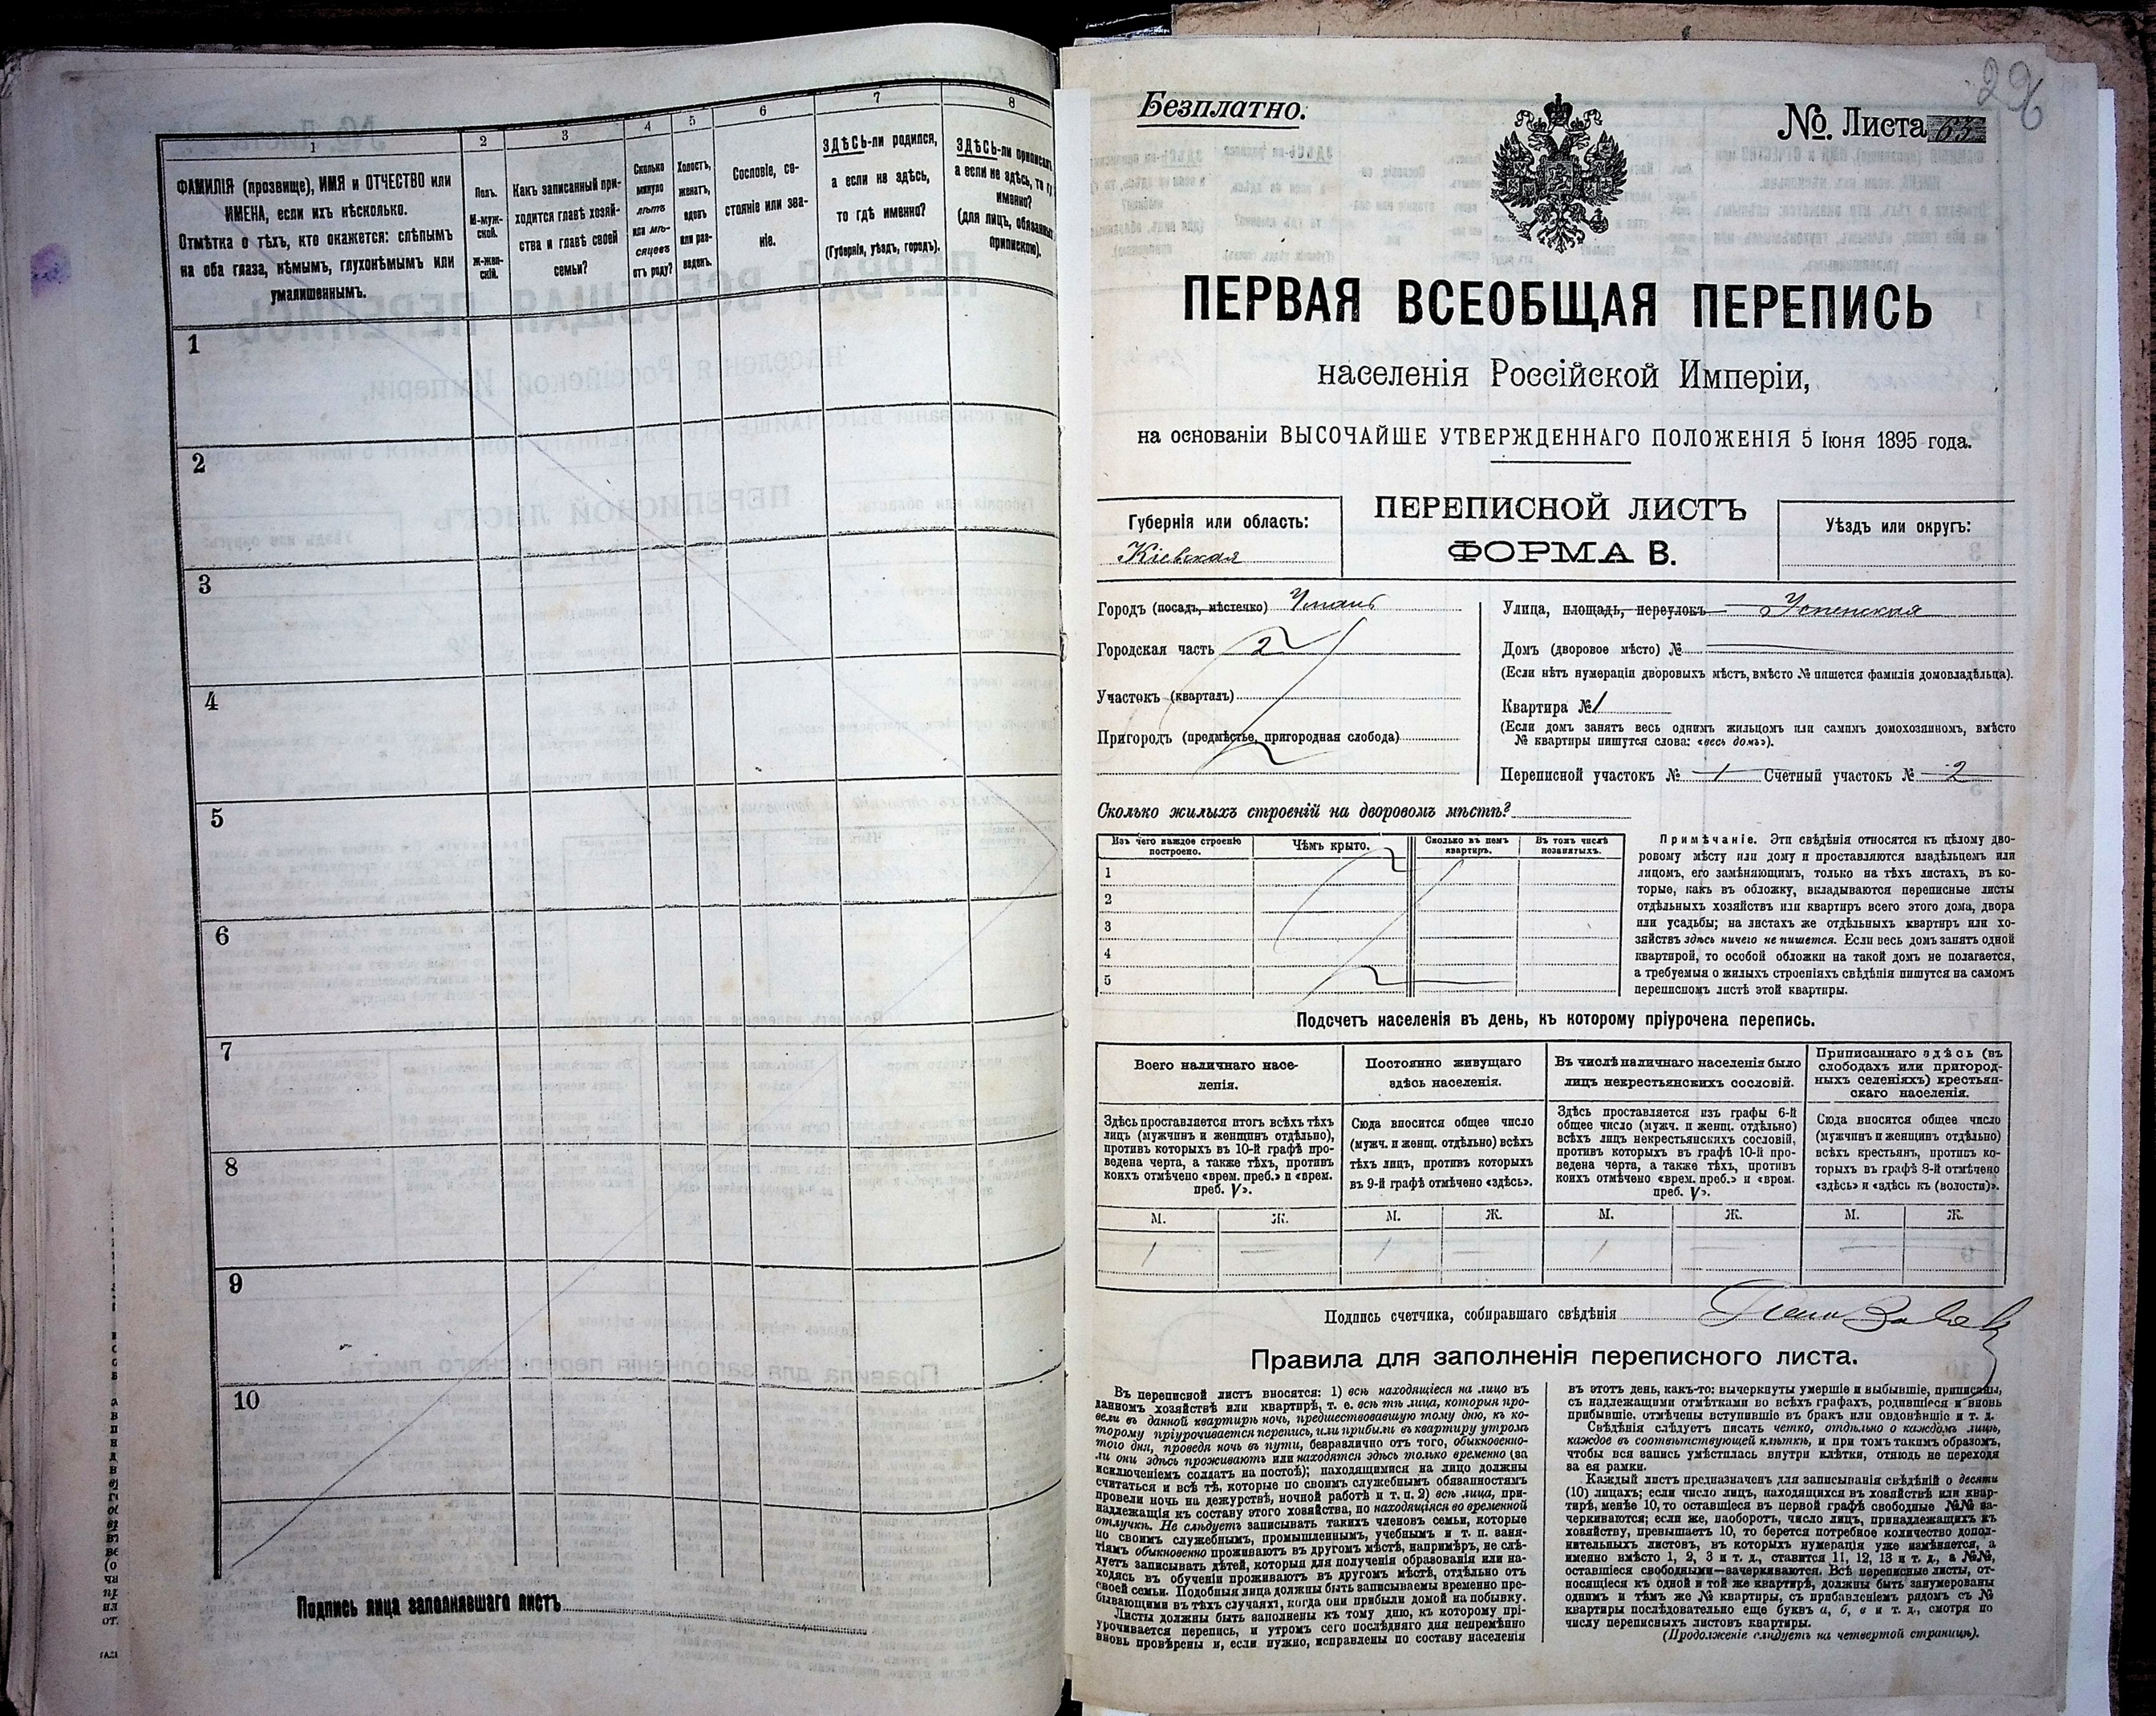 1
2
3
4
5
6
7
8
ФАМИЛІЯ (прозвище), ИМЯ и ОТЧЕСТВО или
ИМЕНА, если ихъ нѣсколько.
Отмѣтка о тѣхъ, кто окажется: слѣпымъ
на оба глаза, нѣмымъ, глухонѣмымъ или
умалишеннымъ.
Полъ.
М-муж-
ской.
Ж-жен-
скій.
Какъ записанный при-
ходится главѣ хозяй-
ства и главѣ своей
семьи?
Сколько
минуло
лѣтъ
или мѣ-
сяцевъ
отъ роду?
Холостъ,
женатъ,
вдовъ
или раз-
веденъ.
Сословіе, со-
стояніе или зва-
ніе.
ЗДѢСЬ-ли родился,
а если не здѣсь,
то гдѣ именно?
(Губернія, уѣздъ, городъ).
ЗДѢСЬ-ли приписанъ,
а если не здѣсь, то гдѣ
именно?
(для лицъ, обязанныхъ
припискою).
1
2
3
4
5
6
7
8
9
10
Подпись лица заполнявшаго листъ
296
Безплатно.
№. Листа 63
ПЕРВАЯ ВСЕОБЩАЯ ПЕРЕПИСЬ
населенія Россійской Имперіи,
на основаніи ВЫСОЧАЙШЕ УТВЕРЖДЕННАГО ПОЛОЖЕНІЯ 5 Іюня 1895 года.
Губернія или область:
Кіевская
ПЕРЕПИСНОЙ ЛИСТЪ
ФОРМА В.
Уѣздъ или округъ:
Городъ (посадъ, мѣстечко) Умань
Городская часть 2
Участокъ (кварталъ)
Пригородъ (предмѣстье, пригородная слобода)
Улица, площадь, переулокъ Успенская
Домъ (дворовое мѣсто) №
(Если нѣтъ нумераціи дворовыхъ мѣстъ, вмѣсто № пишется фамилія домовладѣльца).
Квартира № 1
(Если домъ занятъ весь однимъ жильцомъ или самимъ домохозяиномъ, вмѣсто
№ квартиры пишутся слова: «весь домъ»).
Переписной участокъ № 1 Счетный участокъ № 2
Сколько жилыхъ строеній на дворовомъ мѣстѣ?
Изъ чего каждое строеніе
построено.
Чѣмъ крыто.
Сколько въ немъ
квартиръ.
Въ томъ числѣ
незанятыхъ.
1
2
3
4
5
Примѣчаніе. Эти свѣдѣнія относятся къ цѣлому дво-
ровому мѣсту или дому и проставляются владѣльцемъ или
лицомъ, его замѣняющимъ, только на тѣхъ листахъ, въ ко-
торые, какъ въ обложку, вкладываются переписные листы
отдѣльныхъ хозяйствъ или квартиръ всего этого дома, двора
или усадьбы; на листахъ же отдѣльныхъ квартиръ или хо-
зяйствъ здѣсь ничего не пишется. Если весь домъ занятъ одной
квартирой, то особой обложки на такой домъ не полагается,
а требуемыя о жилыхъ строеніяхъ свѣдѣнія пишутся на самомъ
переписномъ листѣ этой квартиры.
Подсчетъ населенія въ день, къ которому пріурочена перепись.
Всего наличнаго насе-
ленія.
Постоянно живущаго
здѣсь населенія.
Въ числѣ наличнаго населенія было
лицъ некрестьянскихъ сословій.
Приписаннаго здѣсь (въ
слободахъ или пригород-
ныхъ селеніяхъ) крестьян-
скаго населенія.
Здѣсь проставляется итогъ всѣхъ тѣхъ
лицъ (мужчинъ и женщинъ отдѣльно),
противъ которыхъ въ 10-й графѣ про-
ведена черта, а также тѣхъ, противъ
коихъ отмѣчено «врем. преб.» и «врем.
преб. V».
Сюда вносится общее число
(мужч. и женщ. отдѣльно) всѣхъ
тѣхъ лицъ, противъ которыхъ
въ 9-й графѣ отмѣчено «здѣсь».
Здѣсь проставляется изъ графы 6-й
общее число (мужч. и женщ. отдѣльно)
всѣхъ лицъ некрестьянскихъ сословій,
противъ которыхъ въ графѣ 10-й про-
ведена черта, а также тѣхъ, противъ
коихъ отмѣчено «врем. преб.» и «врем.
преб. V».
Сюда вносится общее число
(мужчинъ и женщинъ отдѣльно)
всѣхъ крестьянъ, противъ ко-
торыхъ въ графѣ 8-й отмѣчено
«здѣсь» и «здѣсь къ (волости)».
М. Ж. М. Ж. М. Ж. М. Ж.
1 — 1 — 1 — — —
Подпись счетчика, собиравшаго свѣдѣнія
Правила для заполненія переписного листа.
Въ переписной листъ вносятся: 1) всѣ находящіеся на лицо въ
данномъ хозяйствѣ или квартирѣ, т. е. всѣ тѣ лица, которыя про-
вели въ данной квартирѣ ночь, предшествовавшую тому дню, къ ко-
торому пріурочивается перепись, или прибыли въ квартиру утромъ
того дня, проведя ночь въ пути, безразлично отъ того, обыкновенно-
ли они здѣсь проживаютъ или находятся здѣсь только временно (за
исключеніемъ солдатъ на постоѣ); находящимися на лицо должны
считаться и всѣ тѣ, которые по своимъ служебнымъ обязанностямъ
провели ночь на дежурствѣ, ночной работѣ и т. п. 2) всѣ лица, при-
надлежащія къ составу этого хозяйства, но находящіяся во временной
отлучкѣ. Не слѣдуетъ записывать такихъ членовъ семьи, которые
по своимъ служебнымъ, промышленнымъ, учебнымъ и т. п. заня-
тіямъ обыкновенно проживаютъ въ другомъ мѣстѣ, напримѣръ, не слѣ-
дуетъ записывать дѣтей, которыя для полученія образованія или на-
ходясь въ обученіи проживаютъ въ другомъ мѣстѣ, отдѣльно отъ
своей семьи. Подобныя лица должны быть записываемы временно пре-
бывающими въ тѣхъ случаяхъ, когда они прибыли домой на побывку.
Листы должны быть заполнены къ тому дню, къ которому прі-
урочивается перепись, и утромъ сего послѣдняго дня непремѣнно
вновь провѣрены и, если нужно, исправлены по составу населенія
въ этотъ день, какъ-то: вычеркнуты умершіе и выбывшіе, приписаны,
съ надлежащими отмѣтками во всѣхъ графахъ, родившіеся и вновь
прибывшіе, отмѣчены вступившіе въ бракъ или овдовѣвшіе и т. д.
Свѣдѣнія слѣдуетъ писать четко, отдѣльно о каждомъ лицѣ,
каждое въ соотвѣтствующей клѣткѣ, и при томъ такимъ образомъ,
чтобы вся запись умѣстилась внутри клѣтки, отнюдь не переходя
за ея рамки.
Каждый листъ предназначенъ для записыванія свѣдѣній о десяти
(10) лицахъ; если число лицъ, находящихся въ хозяйствѣ или квар-
тирѣ, менѣе 10, то оставшіеся въ первой графѣ свободные №№ за-
черкиваются; если же, наоборотъ, число лицъ, принадлежащихъ къ
хозяйству, превышаетъ 10, то берется потребное количество допол-
нительныхъ листовъ, въ которыхъ нумерація уже измѣняется, а
именно вмѣсто 1, 2, 3 и т. д., ставится 11, 12, 13 и т. д., а №№,
оставшіеся свободными—зачеркиваются. Всѣ переписные листы, от-
носящіеся къ одной и той же квартирѣ, должны быть занумерованы
однимъ и тѣмъ же № квартиры, съ прибавленіемъ рядомъ съ №
квартиры послѣдовательно еще буквъ а, б, в и т. д., смотря по
числу переписныхъ листовъ квартиры.
(Продолженіе слѣдуетъ на четвертой страницѣ).